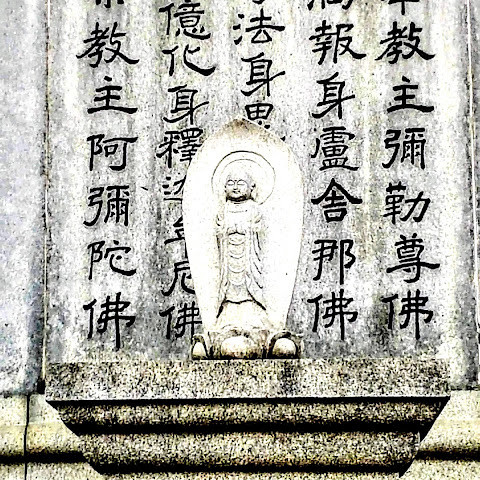 教主彌勒尊佛
報身盧舍那佛
法身毘
億化身釋迦牟尼佛
教主阿彌陀佛